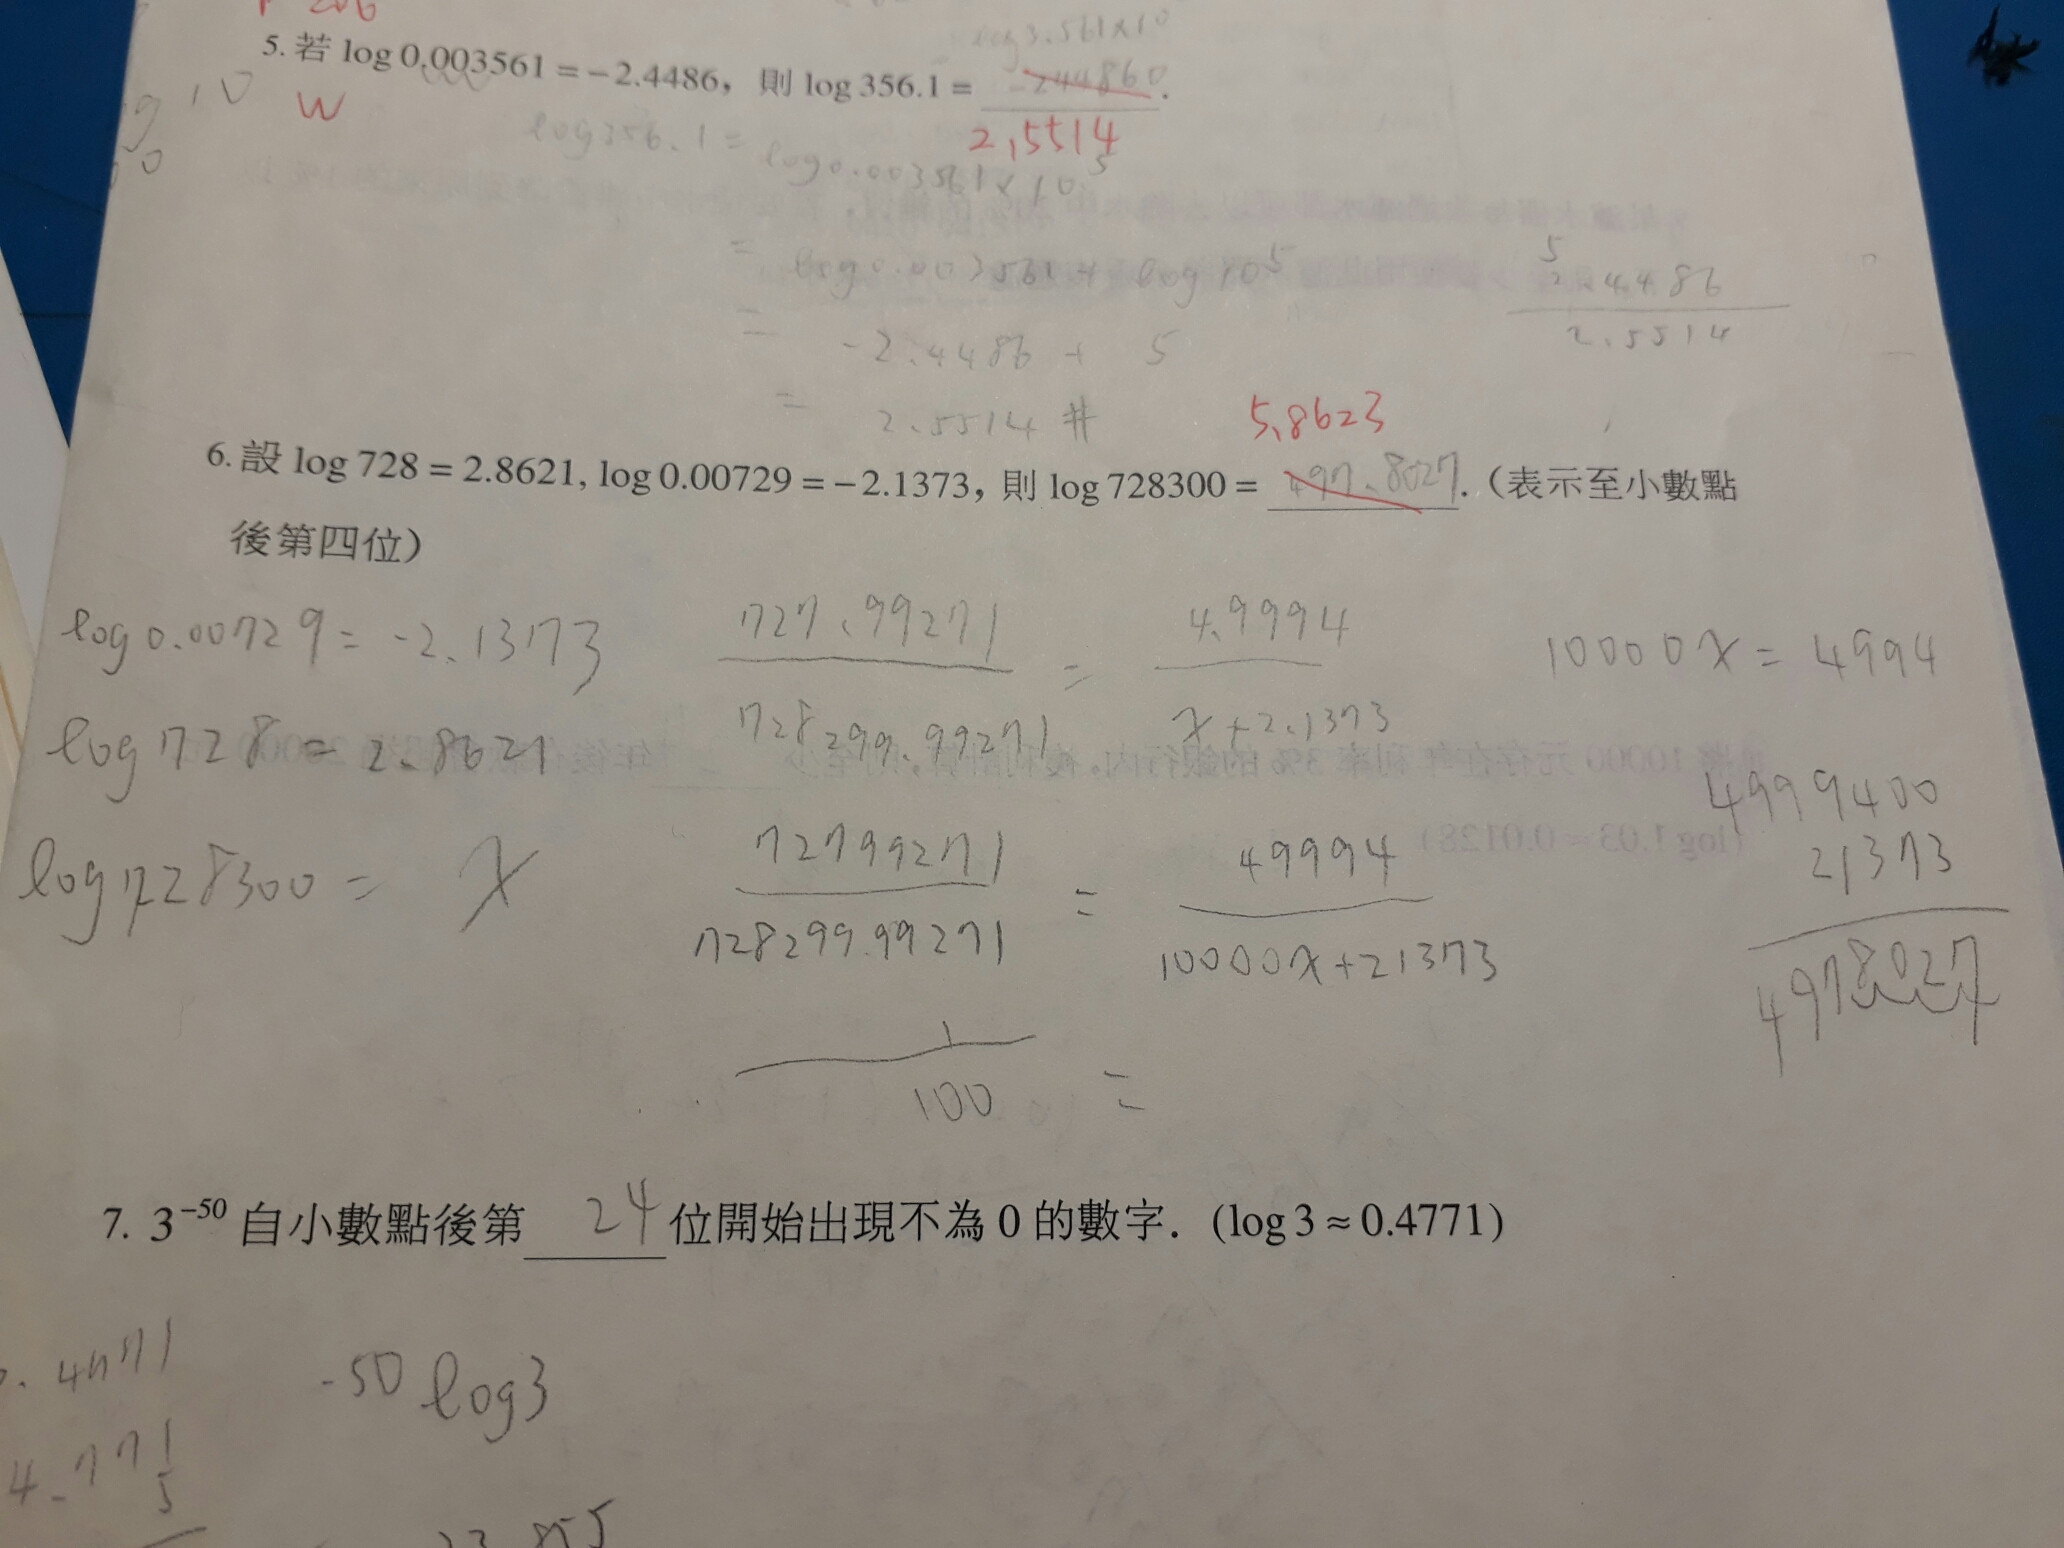 5. 若 log 0.003561 = −2.4486，則 log 356.1 = -244860.
log 3.561×10
W
2.5514
log 356.1 = log 0.003561×10⁵
= log 0.003561 + log 10⁵
= -2.4486 + 5
= 2.5514 #
5
2.4486
2.5514
5.8623
6. 設 log 728 = 2.8621, log 0.00729 = −2.1373，則 log 728300 = 497.8027.（表示至小數點
後第四位）
log 0.00729 = -2.1373
log 728 = 2.8621
log 728300 = x
727.99271 / 728299.99271 = 4.9994 / x+2.1373
72799271 / 728299.99271 = 49994 / 10000x+21373
1 / 100 =
10000x = 4994
4999400
21373
4978027
7. 3⁻⁵⁰ 自小數點後第 24 位開始出現不為 0 的數字．(log 3 ≈ 0.4771)
-50 log 3